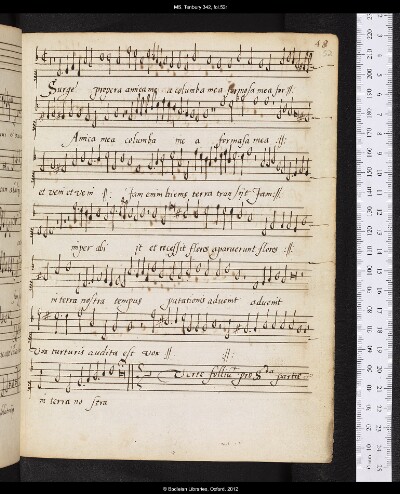 MS. Tenbury 342, fol.52r
48
52
Surge propera amica mea columba mea formosa mea for :||:
Amica mea columba me a formosa mea :||:
et veni et veni :||: Jam enim hiems terra transijt Jam :||:
imber abi it et recessit flores aparuerunt flores :||:
in terra nostra tempus putationis advenit advenit
Vox turturis audita est vox :||: :||:
in terra no stra Verte folliu pro 2a parte
© Bodleian Libraries, Oxford, 2012